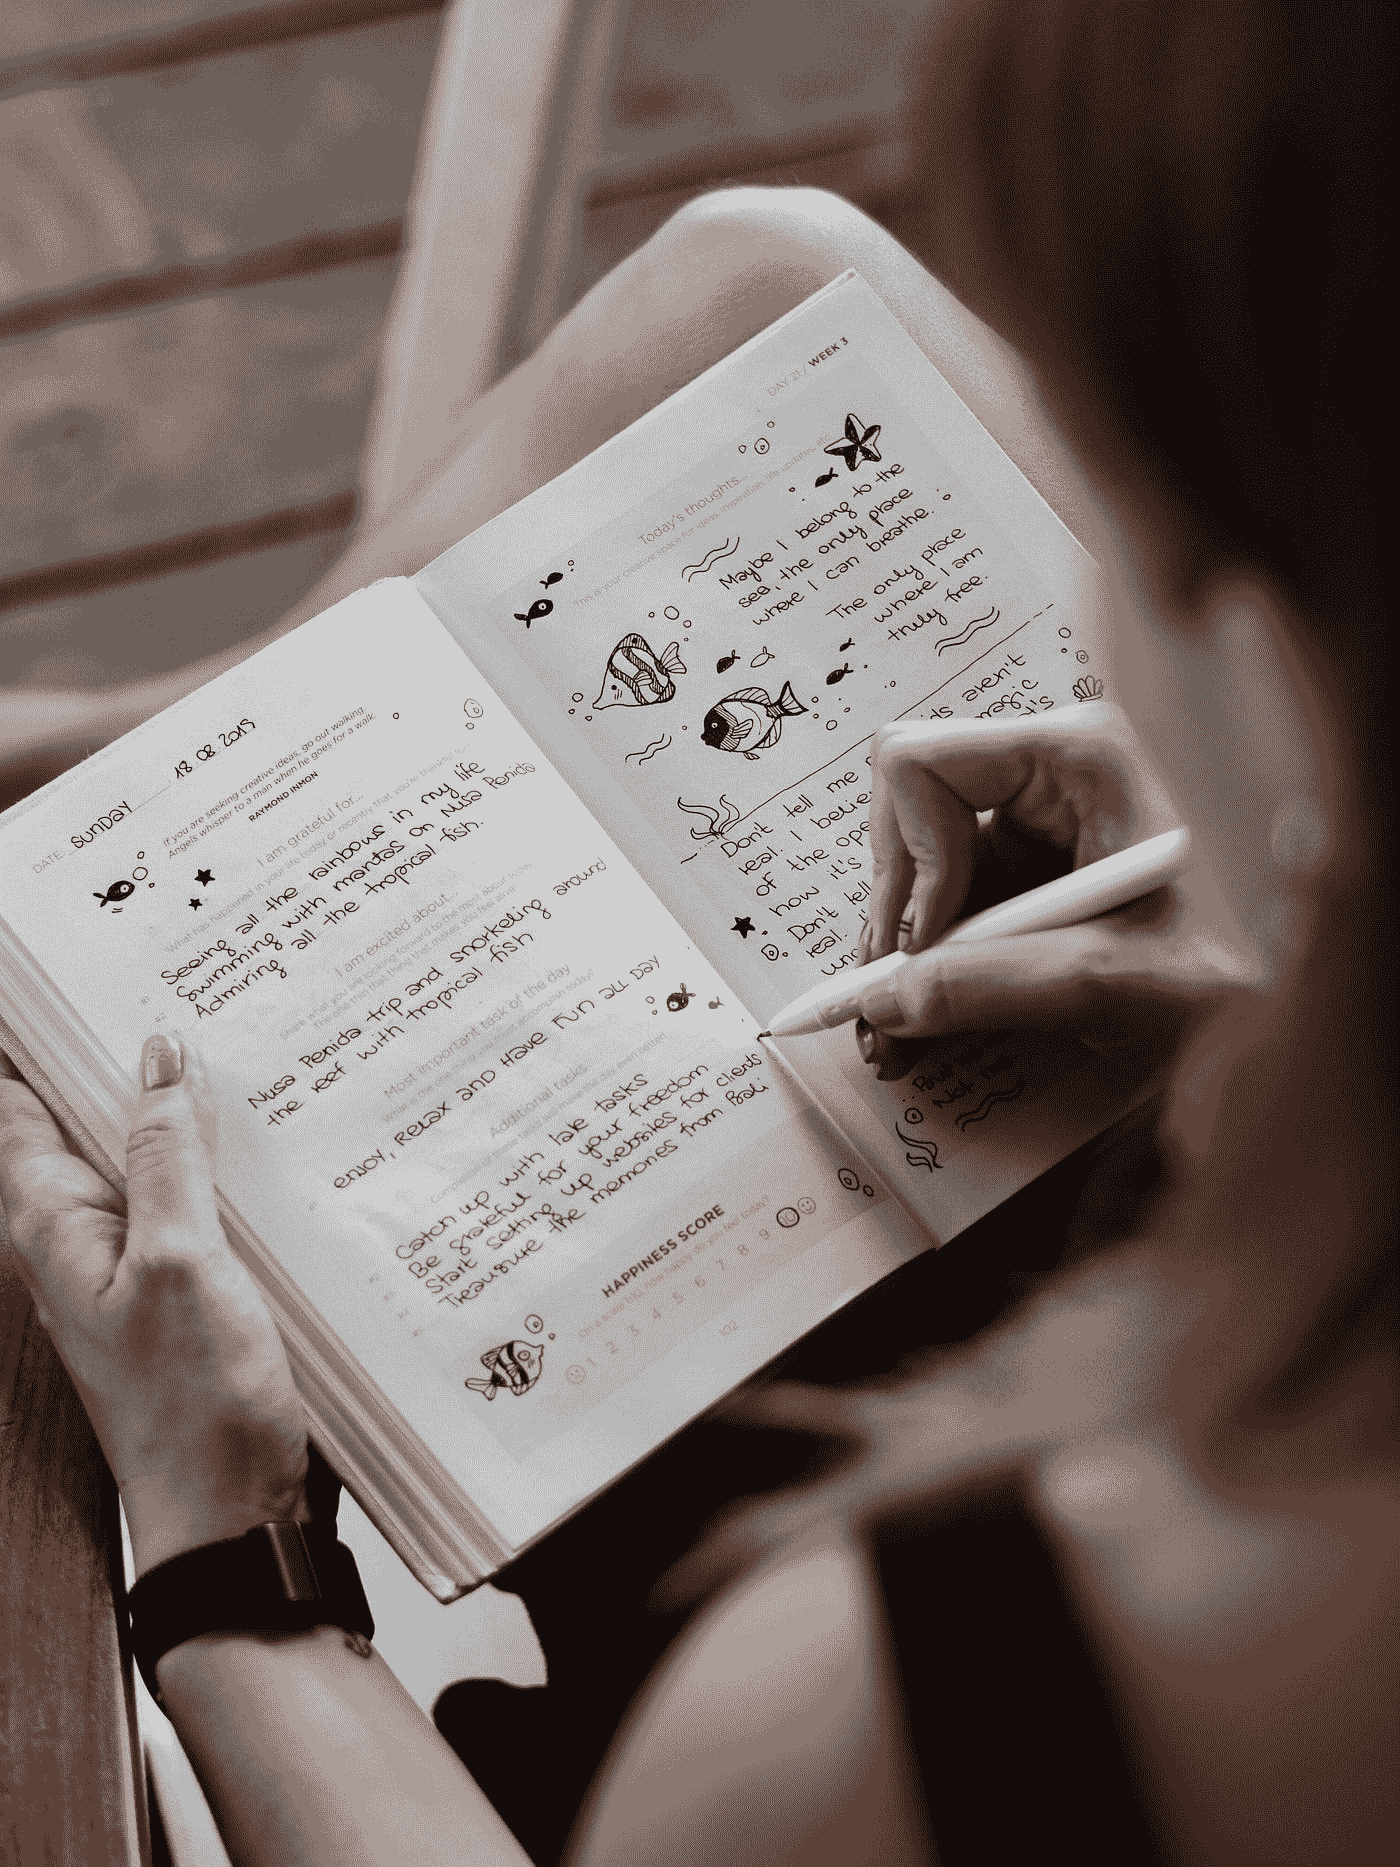 DATE: SUNDAY 18.08.2019
If you are seeking creative ideas, go out walking.
Angels whisper to a man when he goes for a walk.
RAYMOND INMON
I am grateful for...
What has happened in your life today or recently that you're thankful for?
Seeing all the rainbows in my life
Swimming with mantas on Nusa Penida
Admiring all the tropical fish.
I am excited about...
Share what you are looking forward to the most about today.
The one thing that makes you feel alive!
Nusa Penida trip and snorkeling around
the reef with tropical fish
Most important task of the day
What is the one thing you must accomplish today?
ENJOY, RELAX AND HAVE FUN ALL DAY
Additional tasks
Completion of some tasks will make the day even better!
Catch up with late tasks
Be grateful for your freedom
Start setting up websites for clients
Treausure the memories from Bali
HAPPINESS SCORE
On a scale 1-10, how happy do you feel today?
1 2 3 4 5 6 7 8 9 10
102
DAY 21 / WEEK 3
Today's thoughts...
This is your creative space for ideas, inspiration, life updates, etc.
Maybe I belong to the
sea, the only place
where I can breathe.
The only place
where I am
truly free.
Don't tell me aren't
real. I magic
of the
how it's
Don't tell
real.